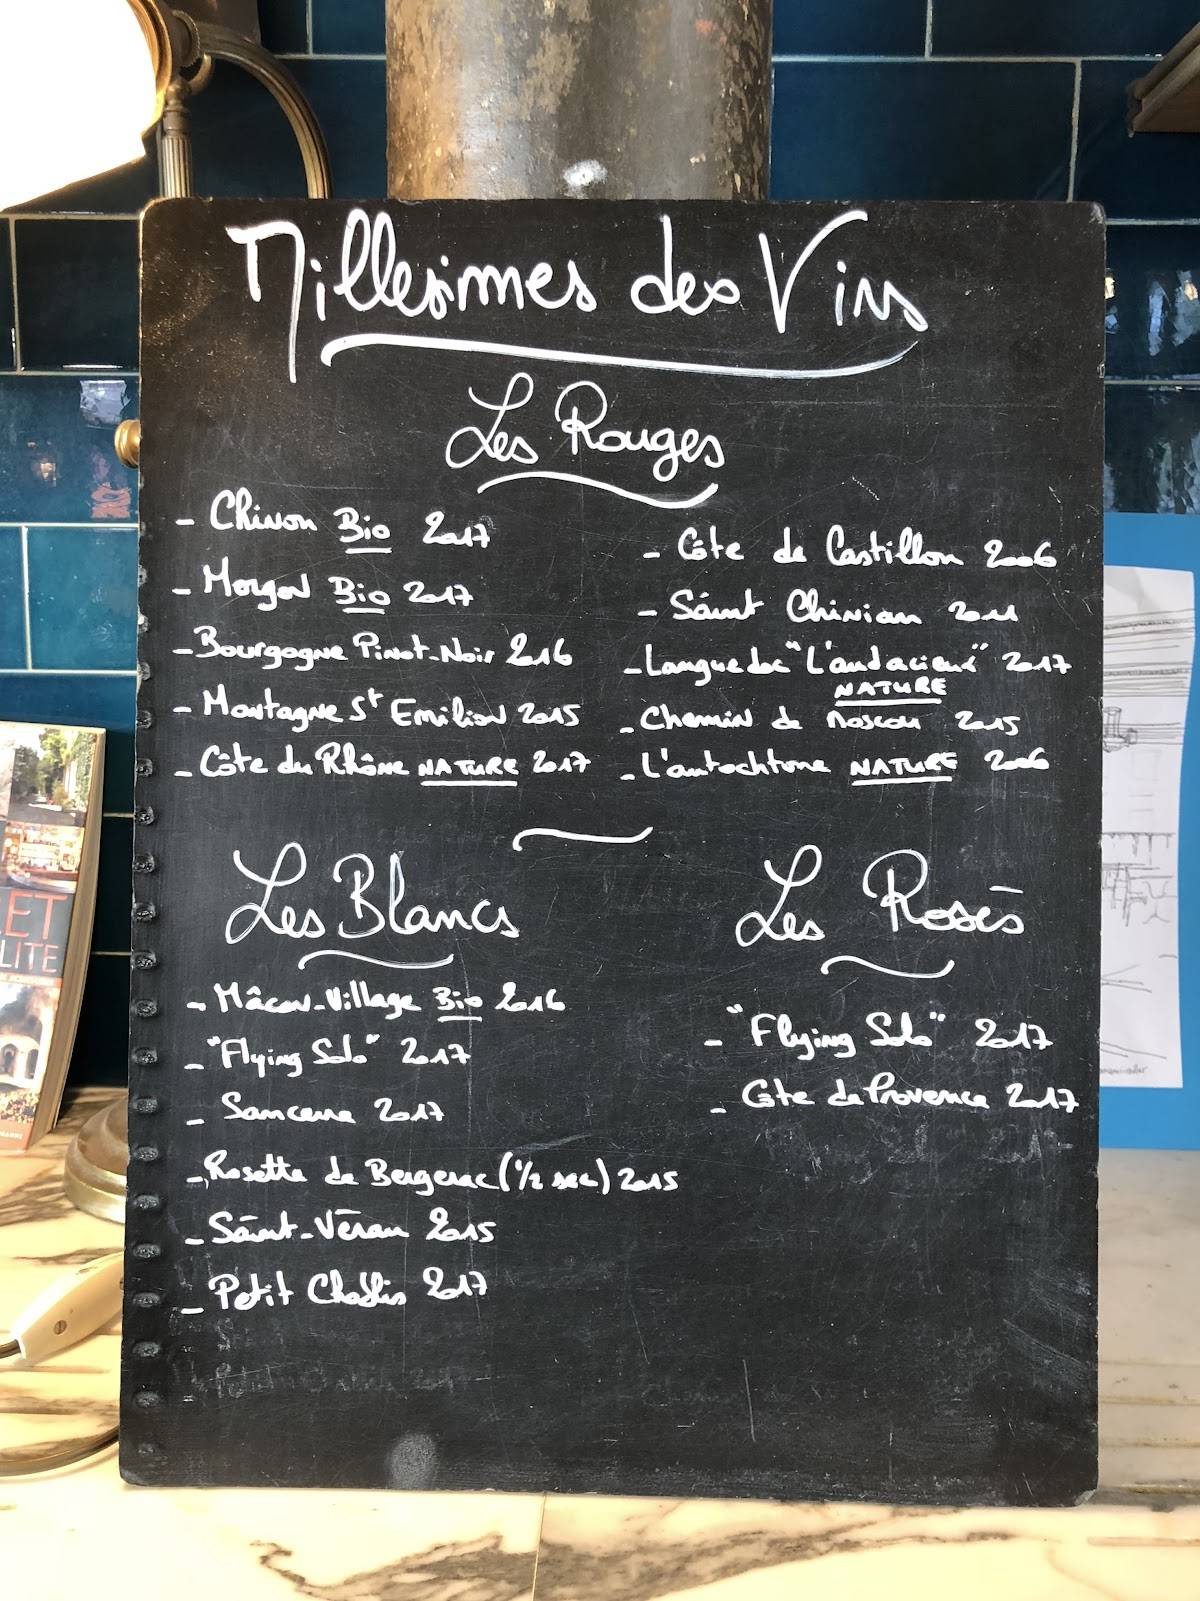 Millesimes des Vins
Les Rouges
- Chinon Bio 2017
- Morgon Bio 2017
- Bourgogne Pinot-Noir 2016
- Montagne St Emilion 2015
- Côte du Rhône NATURE 2017
- Côte de Castillon 2006
- Saint Chinian 2011
- Languedoc "L'audacieux" 2017
NATURE
- Chemin de Moscou 2015
- L'autochtone NATURE 2006
Les Blancs
- Mâcon-Village Bio 2016
- "Flying Solo" 2017
- Sancerre 2017
- Rosette de Bergerac (1/2 sec) 2015
- Saint-Véran 2015
- Petit Chablis 2017
Les Rosés
- "Flying Solo" 2017
- Côte de Provence 2017
ET
LITE